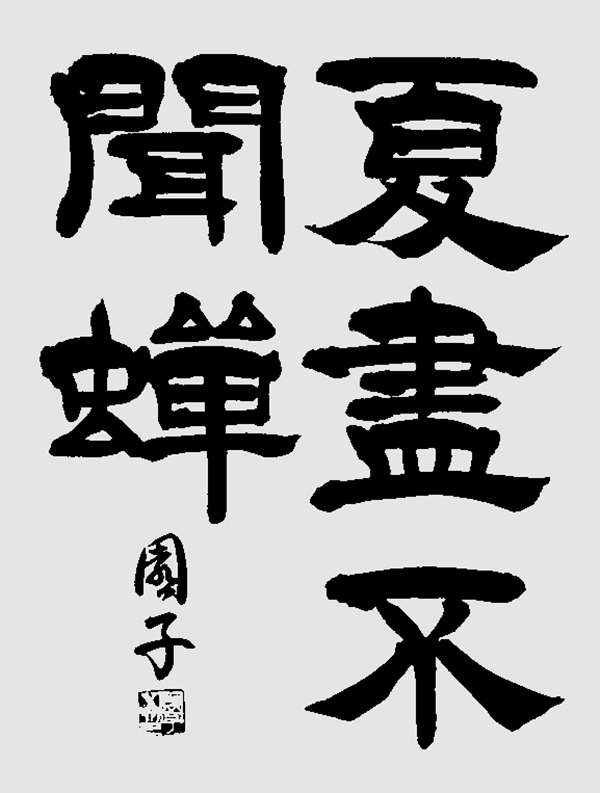 夏盡不
聞蟬
園子